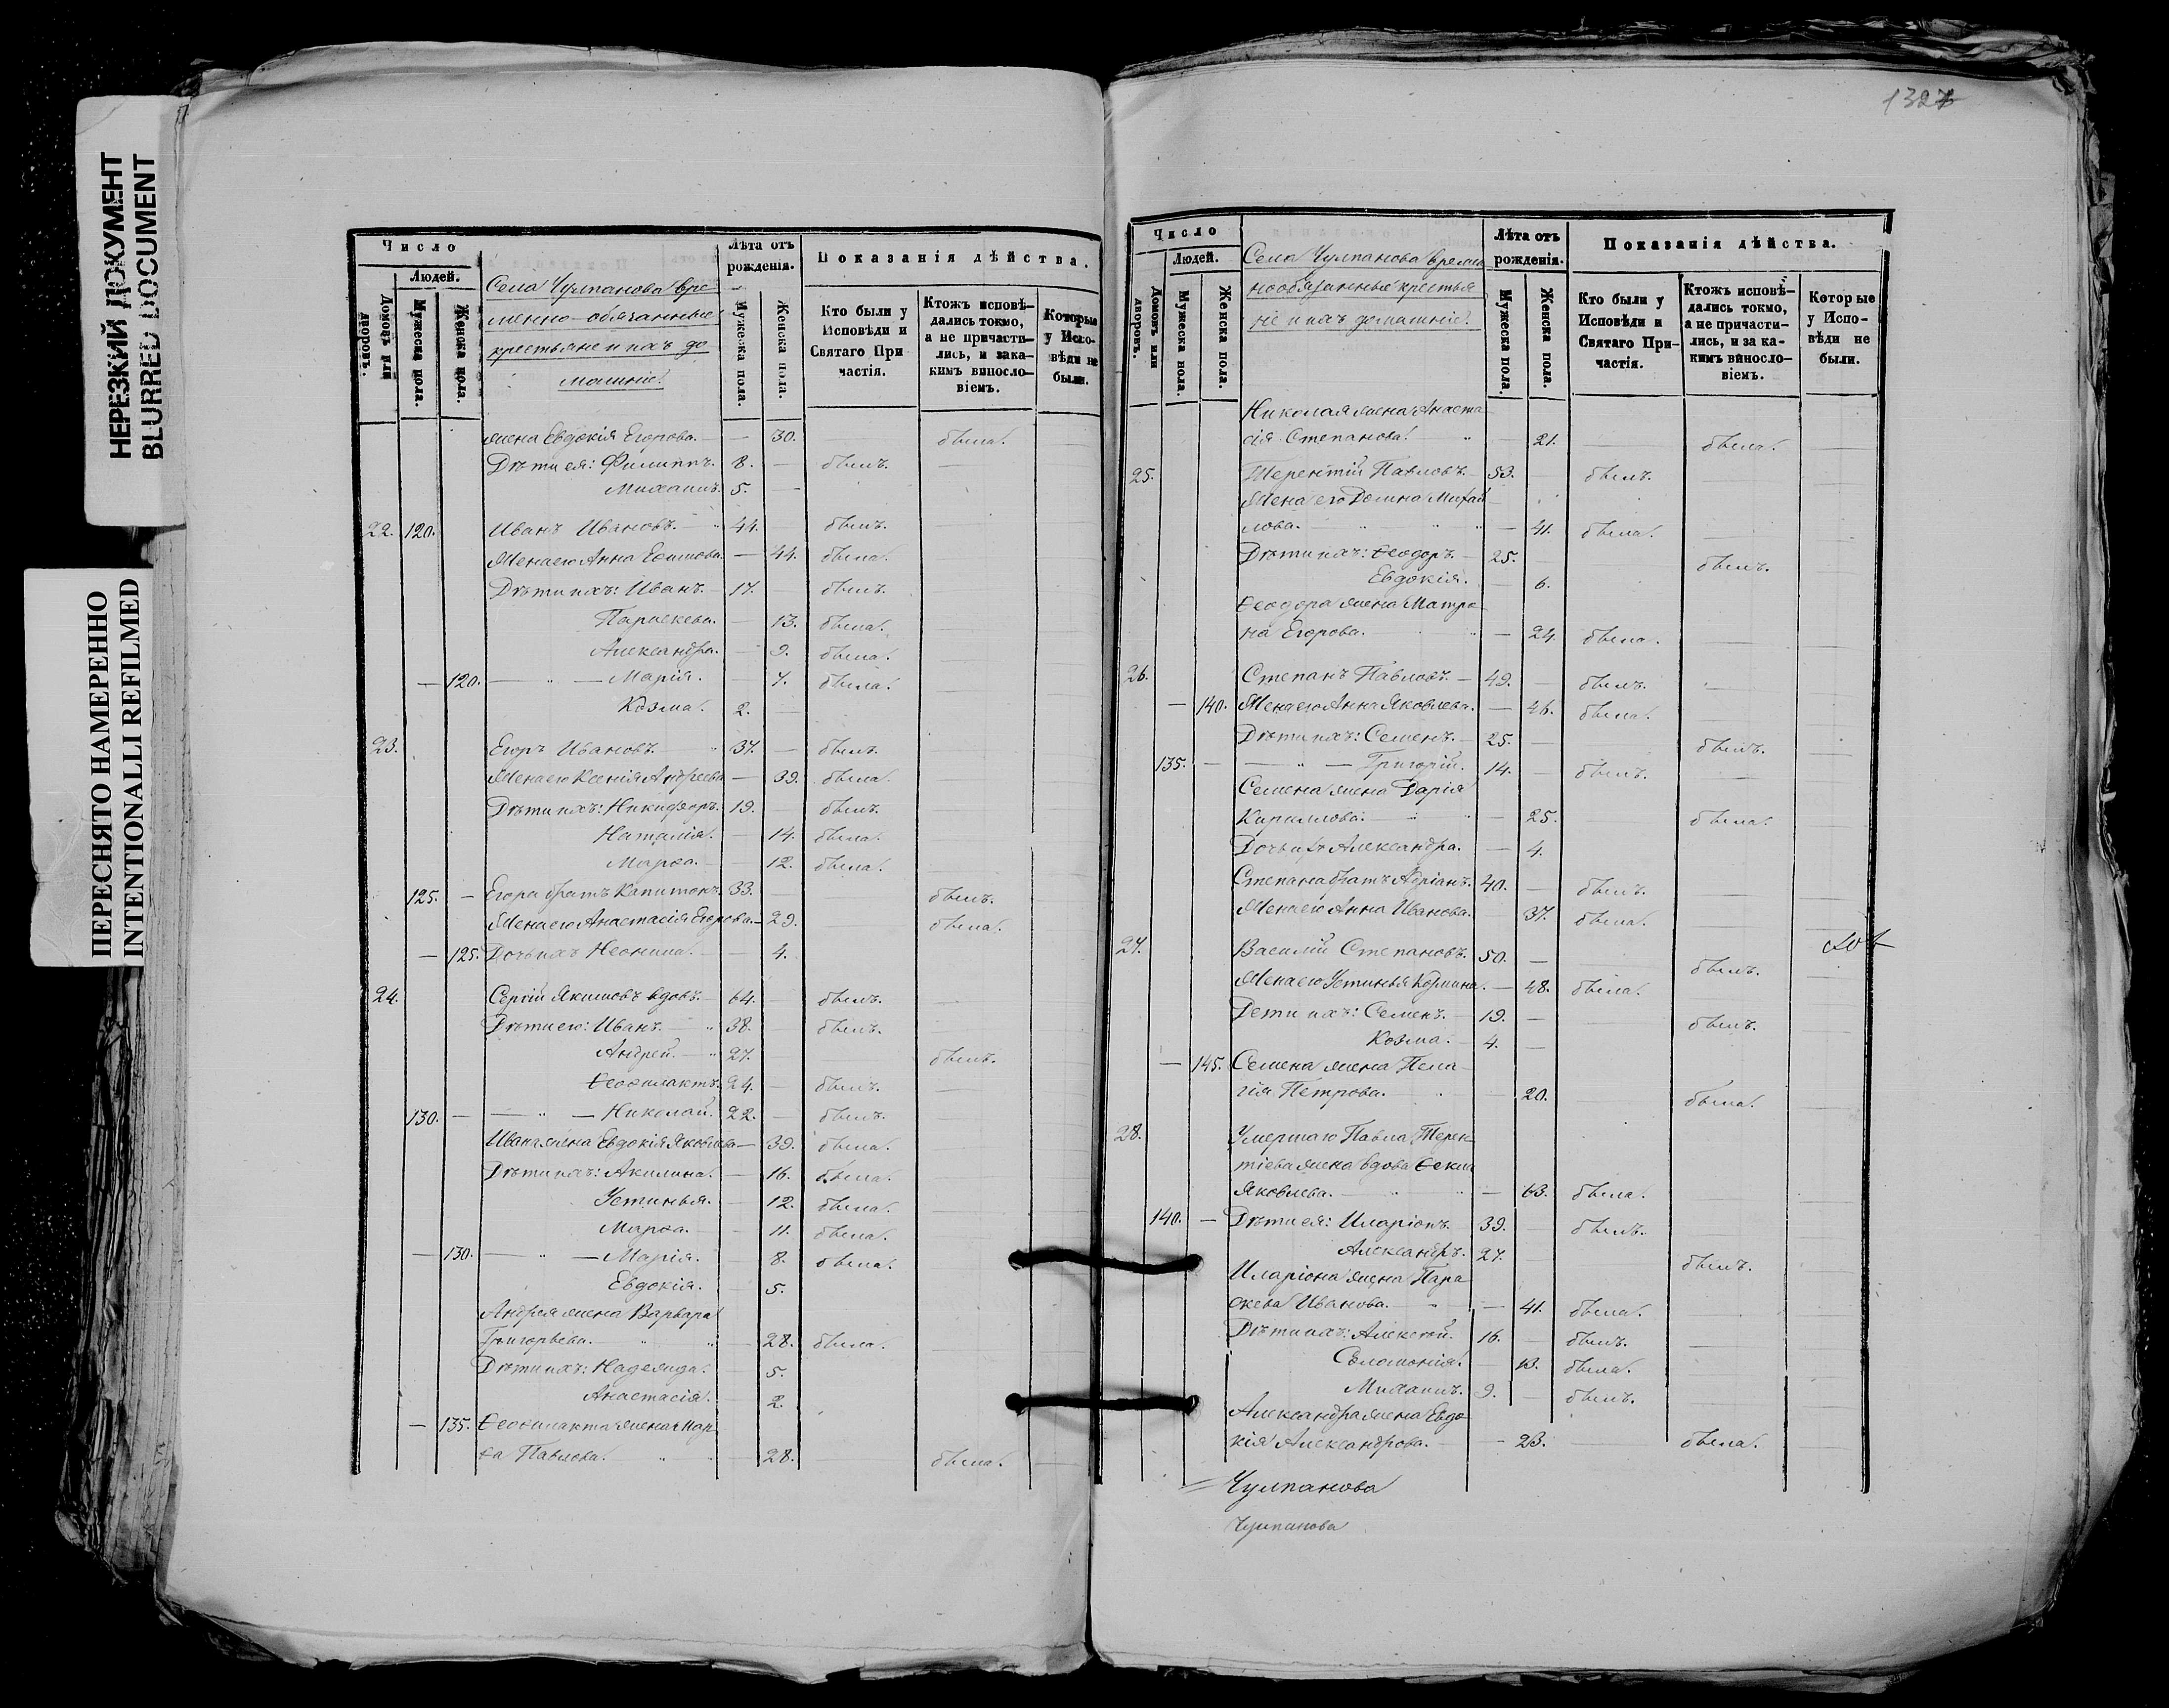 НЕРЕЗКИЙ ДОКУМЕНТ
BLURRED DOCUMENT
ПЕРЕСНЯТО НАМЕРЕННО
INTENTIONALLI REFILMED
Число
Людей.
Домовъ или дворовъ.
Мужеска пола.
Женска пола.
Села Чулпанова вре
менно-обязанные
крестьяне и ихъ до
машніе.
Лѣта отъ рожденія.
Мужеска пола.
Женска пола.
Показанія дѣйства.
Кто были у Исповѣди и Святаго Причастія.
Ктожъ исповѣдались токмо, а не причастились, и за какимъ винословіемъ.
Которые у Исповѣди не были.
жена Евдокія Егорова. — 30. была.
Дѣти ея: Филиппъ. 8. — былъ. —
Михаилъ. 5. —
22. 120. Иванъ Ивановъ. 44. — былъ.
Жена его Анна Ефимова. — 44. была.
Дѣти ихъ: Иванъ. 17. — былъ.
Параскева. — 13. была.
Александра. — 9. была.
— 120. — " — Марія. — 7. была.
Козма. 2. —
23. Егоръ Ивановъ. 37. — былъ.
Жена его Ксенія Андреева — 39. была.
Дѣти ихъ: Никифоръ. 19. — былъ.
Наталія. — 14. была.
Марѳа. — 12. была.
125. — Егора братъ Капитонъ. 33. — былъ.
Жена его Анастасія Егорова. — 29. была.
— 125. Дочь ихъ Неонила. — 4.
24. Сергій Якимовъ вдовъ. 64. — былъ.
Дѣти его: Иванъ. 38. — былъ.
Андрей. 27. — былъ.
Ѳеофилактъ. 24. — былъ.
130. — — " — Николай. 22. — былъ.
Ивана жена Евдокія Яковлева — 39. была.
Дѣти ихъ: Акилина. — 16. была.
Устинья. — 12. была.
Марѳа. — 11. была.
— 130. — " — Марія. 8. была.
Евдокія. 5.
Андрея жена Варвара
Григорьева. 28. была.
Дѣти ихъ: Надежда. 5.
Анастасія. 2.
— 135. Ѳеофилакта жена Мар
ѳа Павлова. 28. была.
1327
Число
Людей.
Домовъ или дворовъ.
Мужеска пола.
Женска пола.
Села Чулпанова времен
нообязанные крестья
не и ихъ домашніе.
Лѣта отъ рожденія.
Мужеска пола.
Женска пола.
Показанія дѣйства.
Кто были у Исповѣди и Святаго Причастія.
Ктожъ исповѣдались токмо, а не причастились, и за какимъ винословіемъ.
Которые у Исповѣди не были.
Николая жена Анаста
сія Степанова. — 21. — была.
25. Терентій Павловъ. 53. — былъ.
Жена его Домна Михай
лова. — 41. была.
Дѣти ихъ: Ѳеодоръ. 25. — былъ.
Евдокія. — 6.
Ѳеодора жена Матро
на Егорова. — 24. была.
26. Степанъ Павловъ. 49. — былъ.
— 140. Жена его Анна Яковлева. — 46. была.
Дѣти ихъ: Семенъ. 25. — былъ.
135. — — " — Григорій. 14. — былъ.
Семена жена Дарія
Кириллова. — 25. — была.
Дочь ихъ Александра. — 4.
Степана братъ Адріанъ. 40. — былъ.
Жена его Анна Иванова. 37. была.
27. Василій Степановъ. 50. — былъ.
Жена его Устинья Козмина. — 48. была.
Дети ихъ: Семенъ. 19. — былъ.
Козма. 4. —
— 145. Семена жена Пела
гія Петрова. — 20. — была.
28. Умершаго Павла Терен
тіева жена вдова Ѳекла
Яковлева. — 63. была.
140. — Дѣти ея: Иларіонъ. 39. — былъ.
Александръ. 27. былъ.
Иларіона жена Пара
скева Иванова. — 41. была.
Дѣти ихъ: Алексѣй. 16. — былъ.
Соломонія. 13. была.
Михаилъ. 9. — былъ.
Александра жена Евдо
кія Александрова. — 23. — была.
Чулпанова
Чулпанова